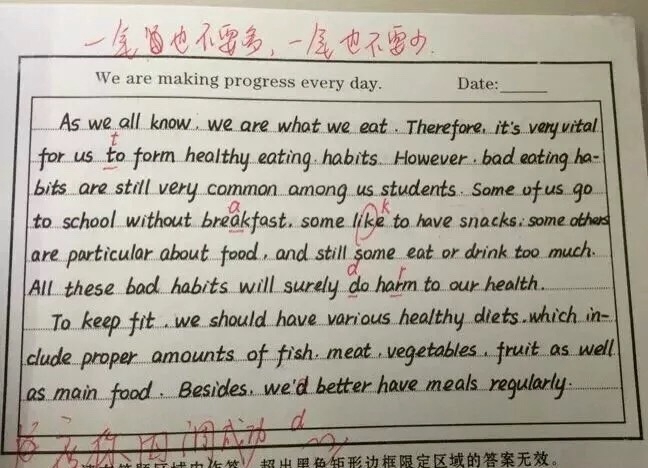 一尾也不要多，一尾也不要少.
We are making progress every day. Date:
t
As we all know, we are what we eat. Therefore, it's very vital
for us to form healthy eating habits. However, bad eating ha-
bits are still very common among us students. Some of us go
a k
to school without breakfast, some like to have snacks; some others
are particular about food, and still some eat or drink too much.
d r
All these bad habits will surely do harm to our health.
To keep fit, we should have various healthy diets, which in-
clude proper amounts of fish, meat, vegetables, fruit as well
as main food. Besides, we'd better have meals regularly.
成功 d
超出黑色矩形边框限定区域的答案无效。